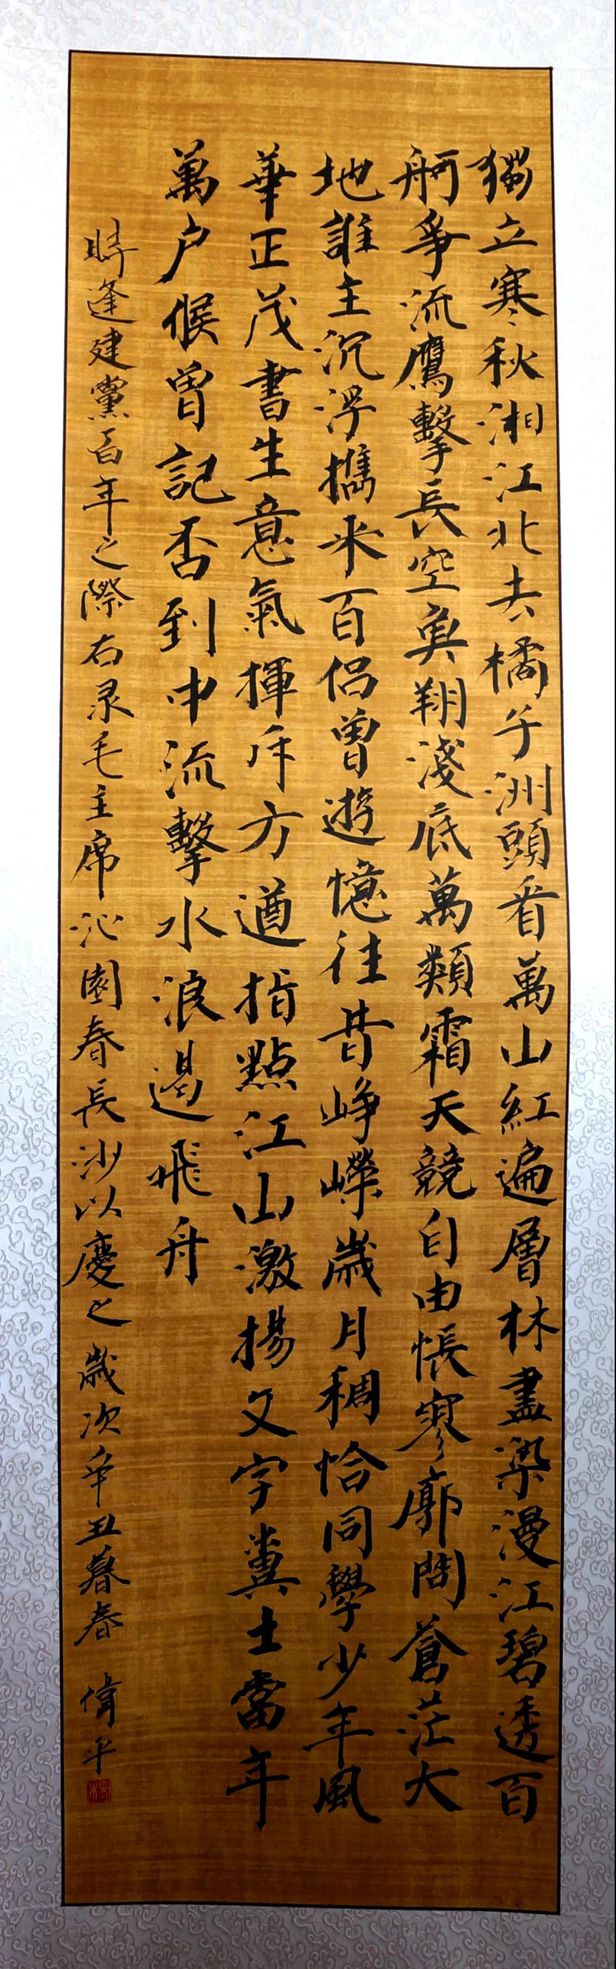 獨立寒秋湘江北去橘子洲頭看萬山紅遍層林盡染漫江碧透百
舸爭流鷹擊長空魚翔淺底萬類霜天競自由悵寥廓問蒼茫大
地誰主沉浮攜來百侶曾遊憶往昔崢嶸歲月稠恰同學少年風
華正茂書生意氣揮斥方遒指點江山激揚文字糞土當年
萬户侯曾記否到中流擊水浪遏飛舟
時逢建黨百年之際右录毛主席沁園春長沙以慶之歲次辛丑暮春 偉平